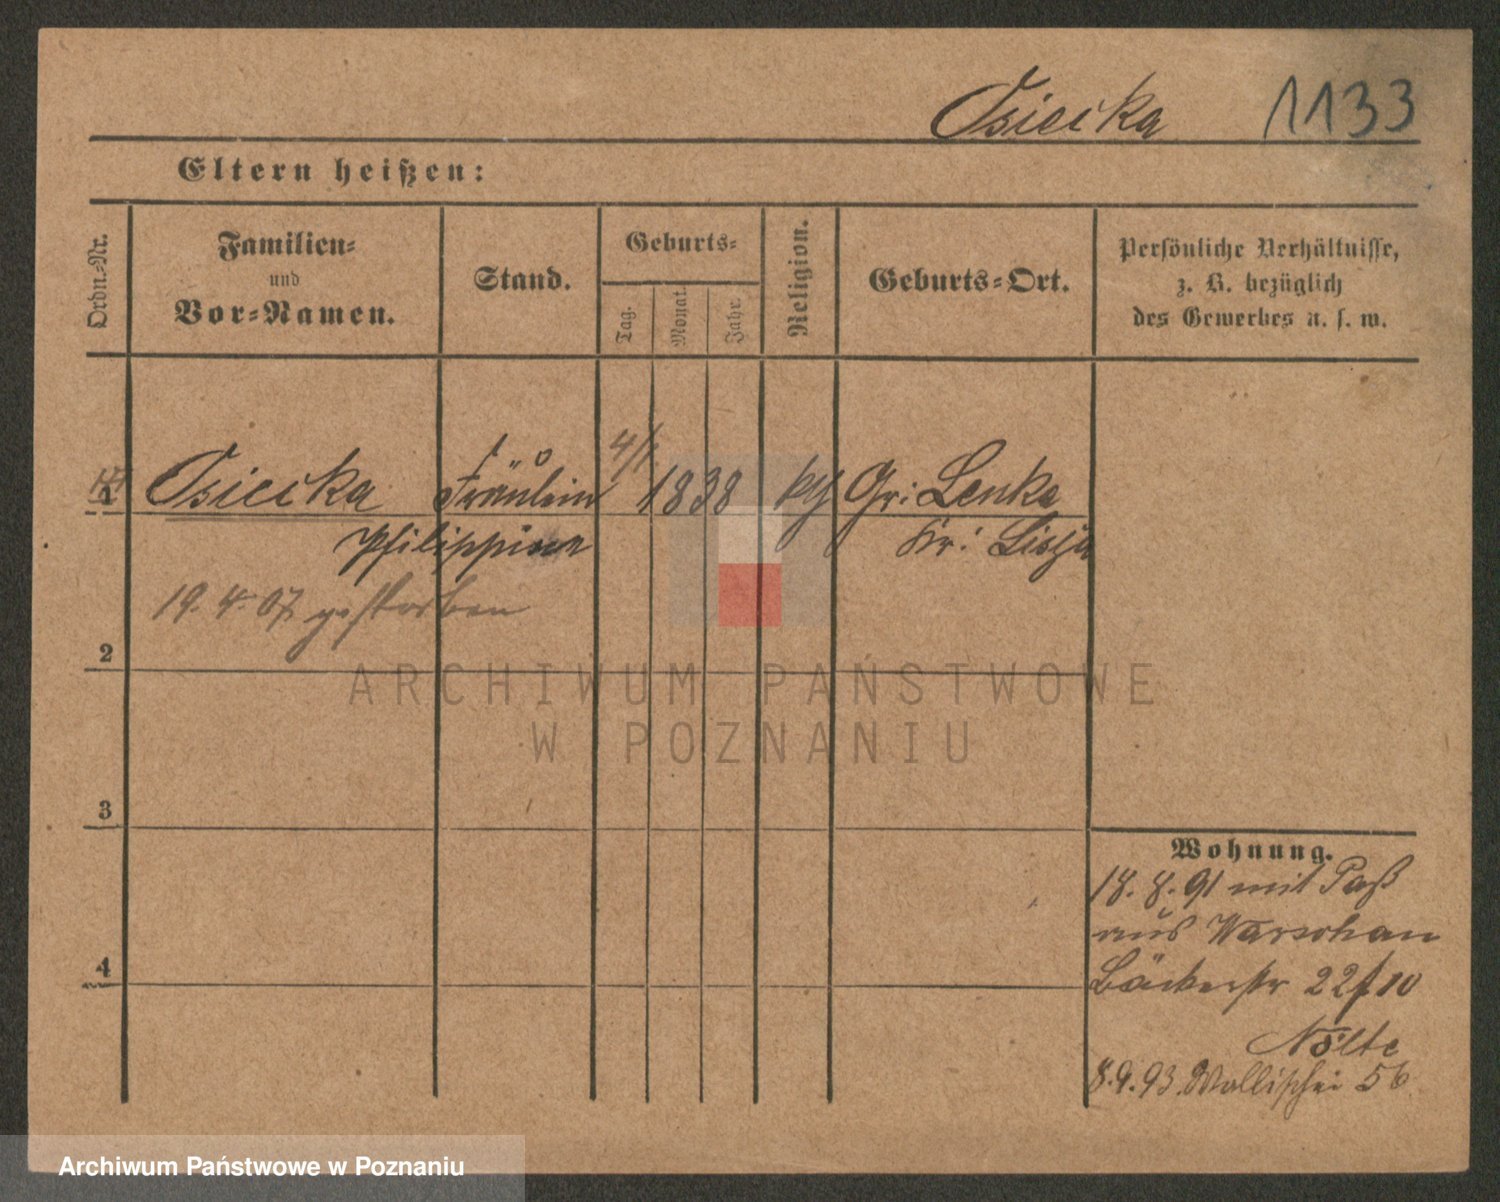 Osiecka 1133
Eltern heißen:
Ordn.-Nr.
Familien-
und
Vor-Namen.
Stand.
Geburts-
Tag.
Monat.
Jahr.
Religion.
Geburts-Ort.
Persönliche Verhältnisse,
z. B. bezüglich
des Gewerbes u. s. w.
1 Osiecka Fräulein 4/1 1838 Gr: Lenka
Philippine Kr:
19. 4. 07 gestorben
2
3
4
Wohnung.
18. 8. 91 mit Paß
aus Warschau
Bäckerstr 22
Nölte
8. 9. 93. Wallischei 56
ARCHIWUM PAŃSTWOWE
W POZNANIU
Archiwum Państwowe w Poznaniu